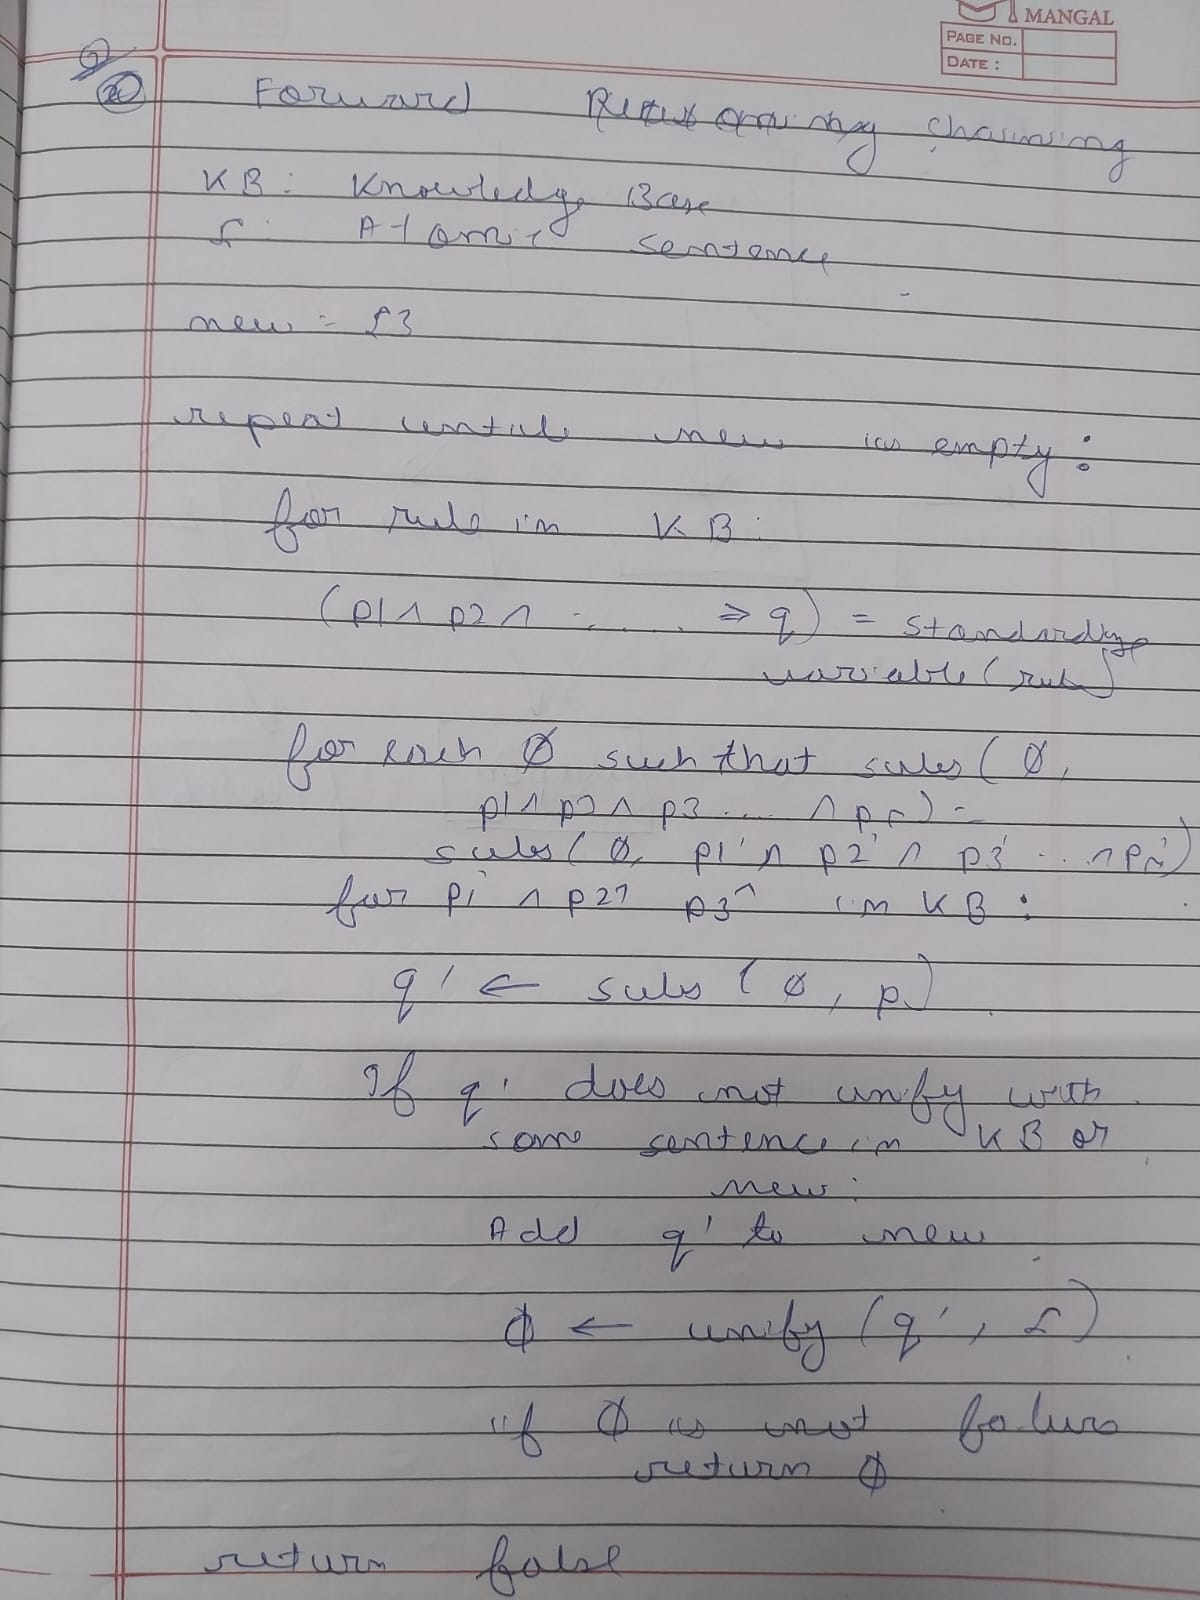 MANGAL
PAGE NO.
DATE :
Forward Reasoning chaining
KB : Knowledge Base
Atomic sentence
new = { }
repeat until new is empty :
for rule in KB :
(p1 ∧ p2 ∧ ..... ⇒ q) = standardize
variable (rule)
for each Ø such that subs ( Ø,
p1 ∧ p2 ∧ p3 .... ∧ pn) =
subs ( Ø, p1' ∧ p2' ∧ p3' ... ∧ pn')
for pi ∧ p2 p3 in KB :
q' ← subs ( Ø, p )
If q' does not unify with
some sentence in KB or
new :
Add q' to new
φ ← unify (q', )
if φ is not failure
return φ
return false